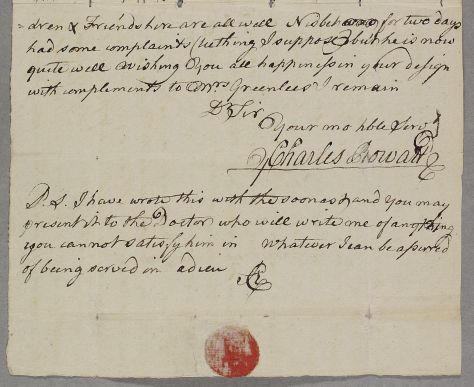 =dren & Friends here are all well Nisbet has for two days
had some complaints (tething I suppose) but he is now
quite well Wishing You all happiness in your design
with complements to Mrs Greenlees I remain
Dr Sir
Your mo hble Servt
Charles Rowan
P.S. I have wrote this with the soonest and you may
present it to the Doctor who will write me of anything
you cannot satisfy him in Whatever I can be of
of being served in adieu
CR